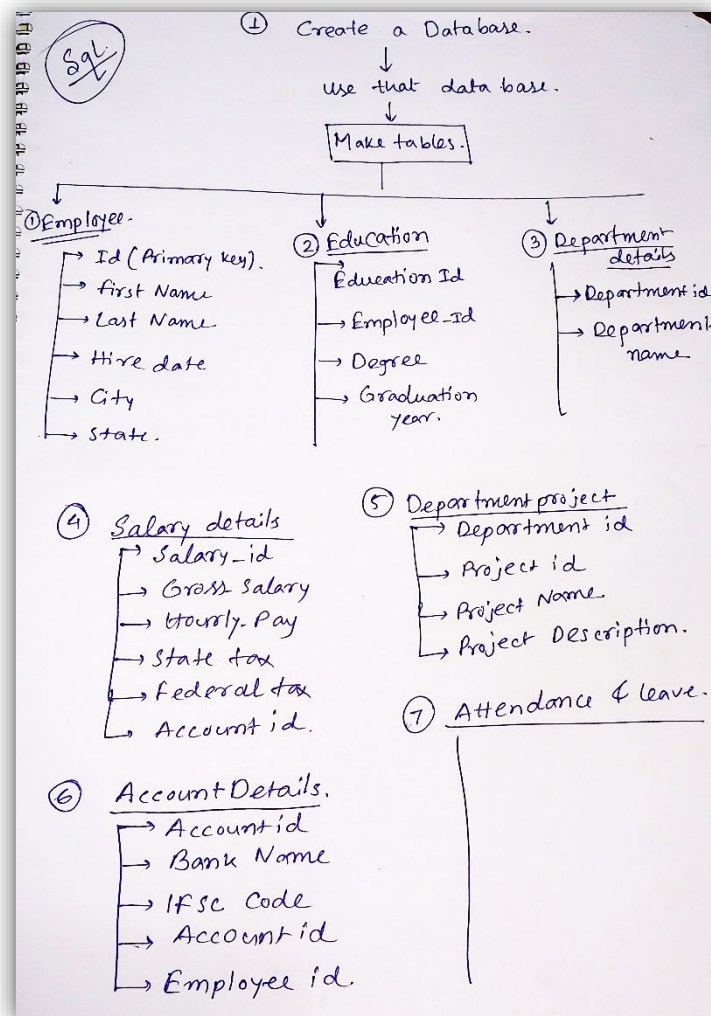 Sql
① Create a Database.
use that data base.
Make tables.
① Employee.
Id (Primary key).
first Name
Last Name
Hire date
City
State.
② Education
Education Id
Employee_Id
Degree
Graduation
year.
③ Department
details
Department id
Department
name
④ Salary details
Salary_id
Gross Salary
Hourly-Pay
State tax
federal tax
Account id.
⑤ Department project
Department id
Project id
Project Name
Project Description.
⑥ Account Details.
Account id
Bank Name
IFSC Code
Account id
Employee id.
⑦ Attendance & leave.